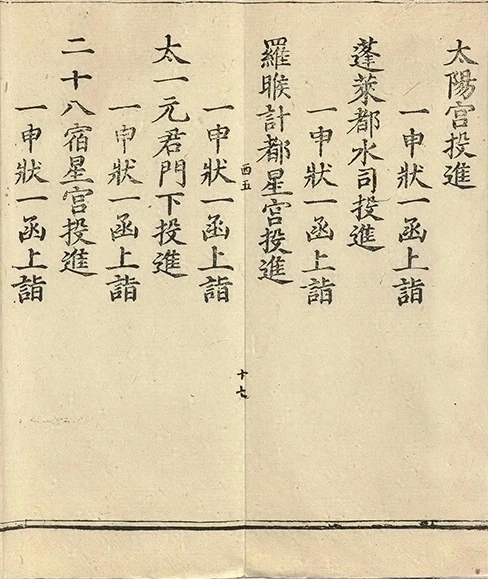 太陽宮投進
一申狀一函上詣
蓬萊都水司投進
一申狀一函上詣
羅睺計都星宮投進
西五
十七
一申狀一函上詣
太一元君門下投進
一申狀一函上詣
二十八宿星宮投進
一申狀一函上詣